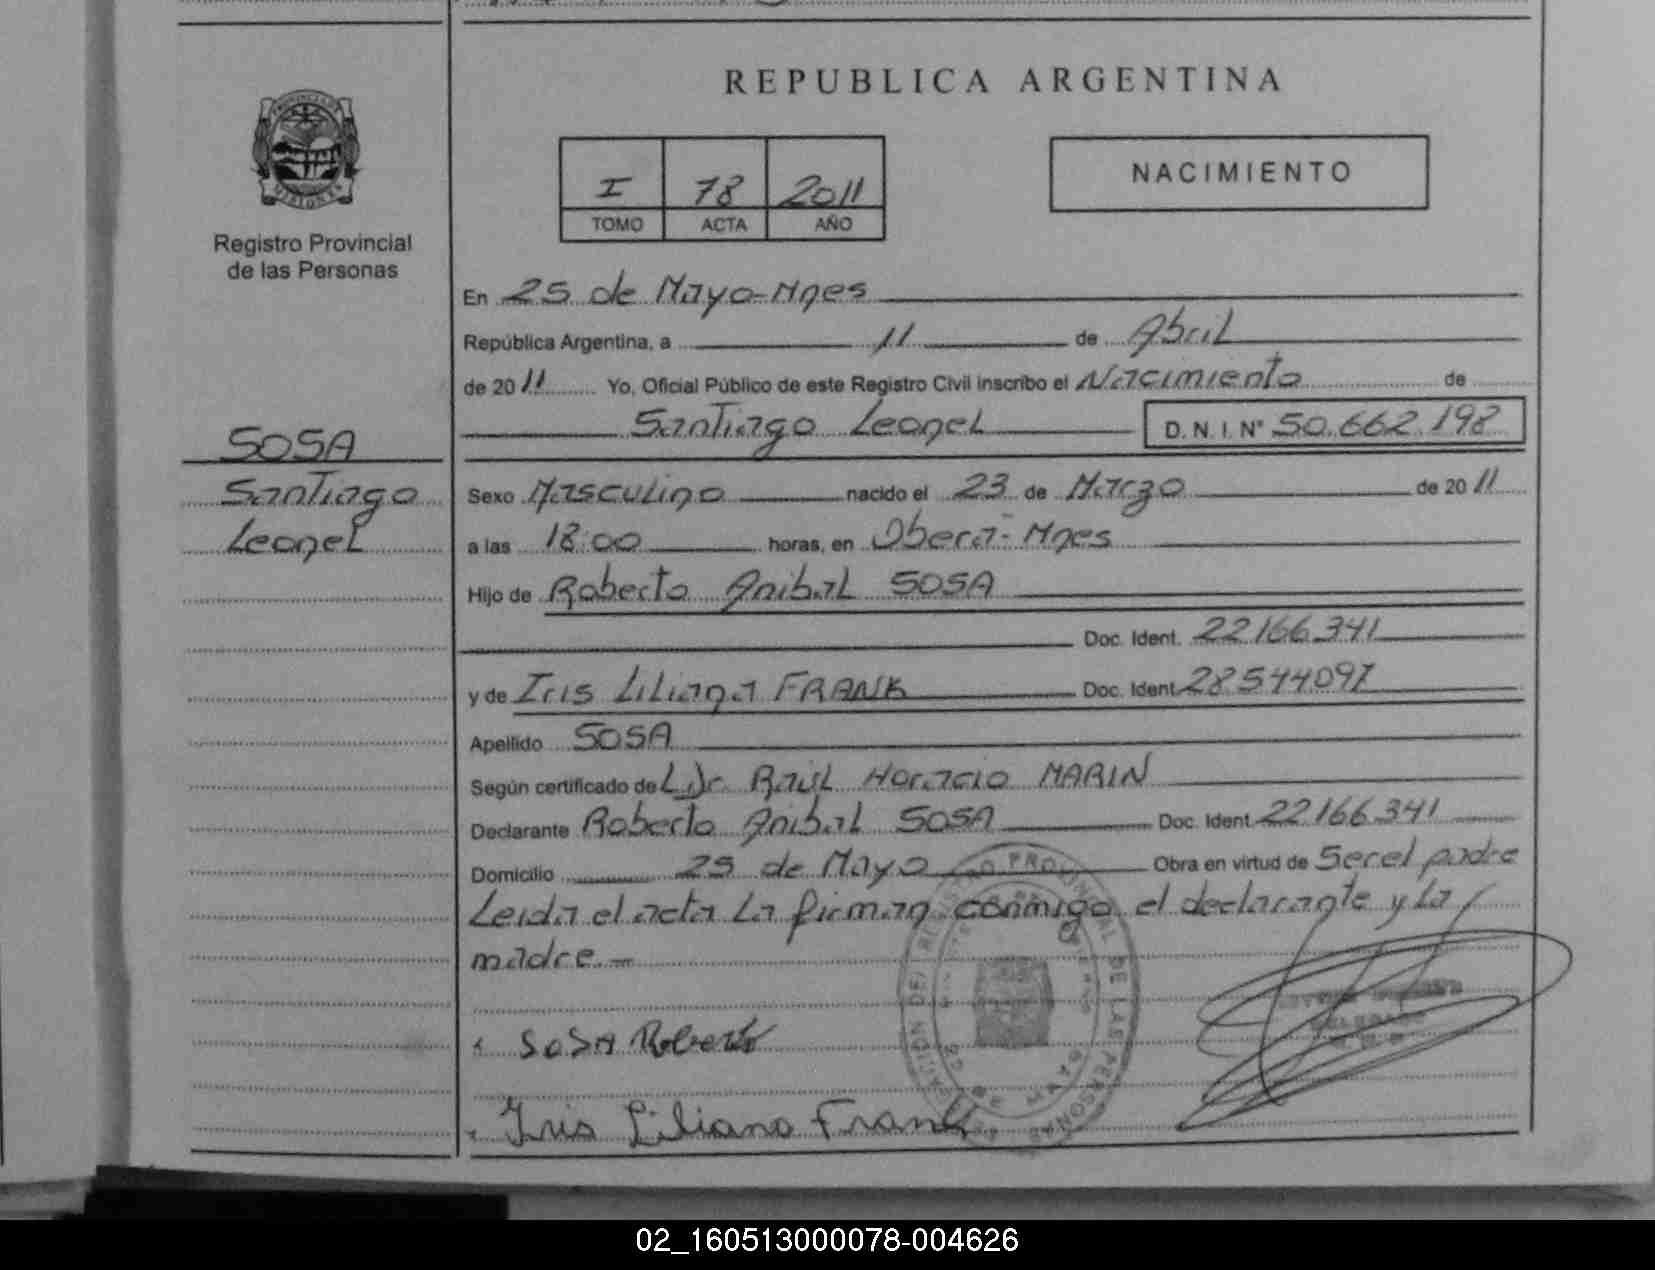 REPUBLICA ARGENTINA
I 78 2011
TOMO ACTA AÑO
NACIMIENTO
Registro Provincial
de las Personas
SOSA
Santiago
Leonel
En 25 de Mayo-Mnes
República Argentina, a 11 de Abril
de 2011 Yo, Oficial Público de este Registro Civil inscribo el Nacimiento de
Santiago Leonel D. N. I. N° 50.662.198
Sexo Masculino nacido el 23 de Marzo de 2011
a las 18:00 horas, en Oberá-Mnes
Hijo de Roberto Anibal SOSA
Doc. Ident. 22166341
y de Iris Liliana FRANK Doc. Ident. 28544097
Apellido SOSA
Según certificado de Dr. Raúl Horacio MARIN
Declarante Roberto Anibal SOSA Doc. Ident. 22166341
Domicilio 25 de Mayo Obra en virtud de Ser el padre
Leida el acta la firman conmigo el declarante y la
madre.-
SOSA Roberto
Iris Liliana Frank
DELEGADA
02_160513000078-004626